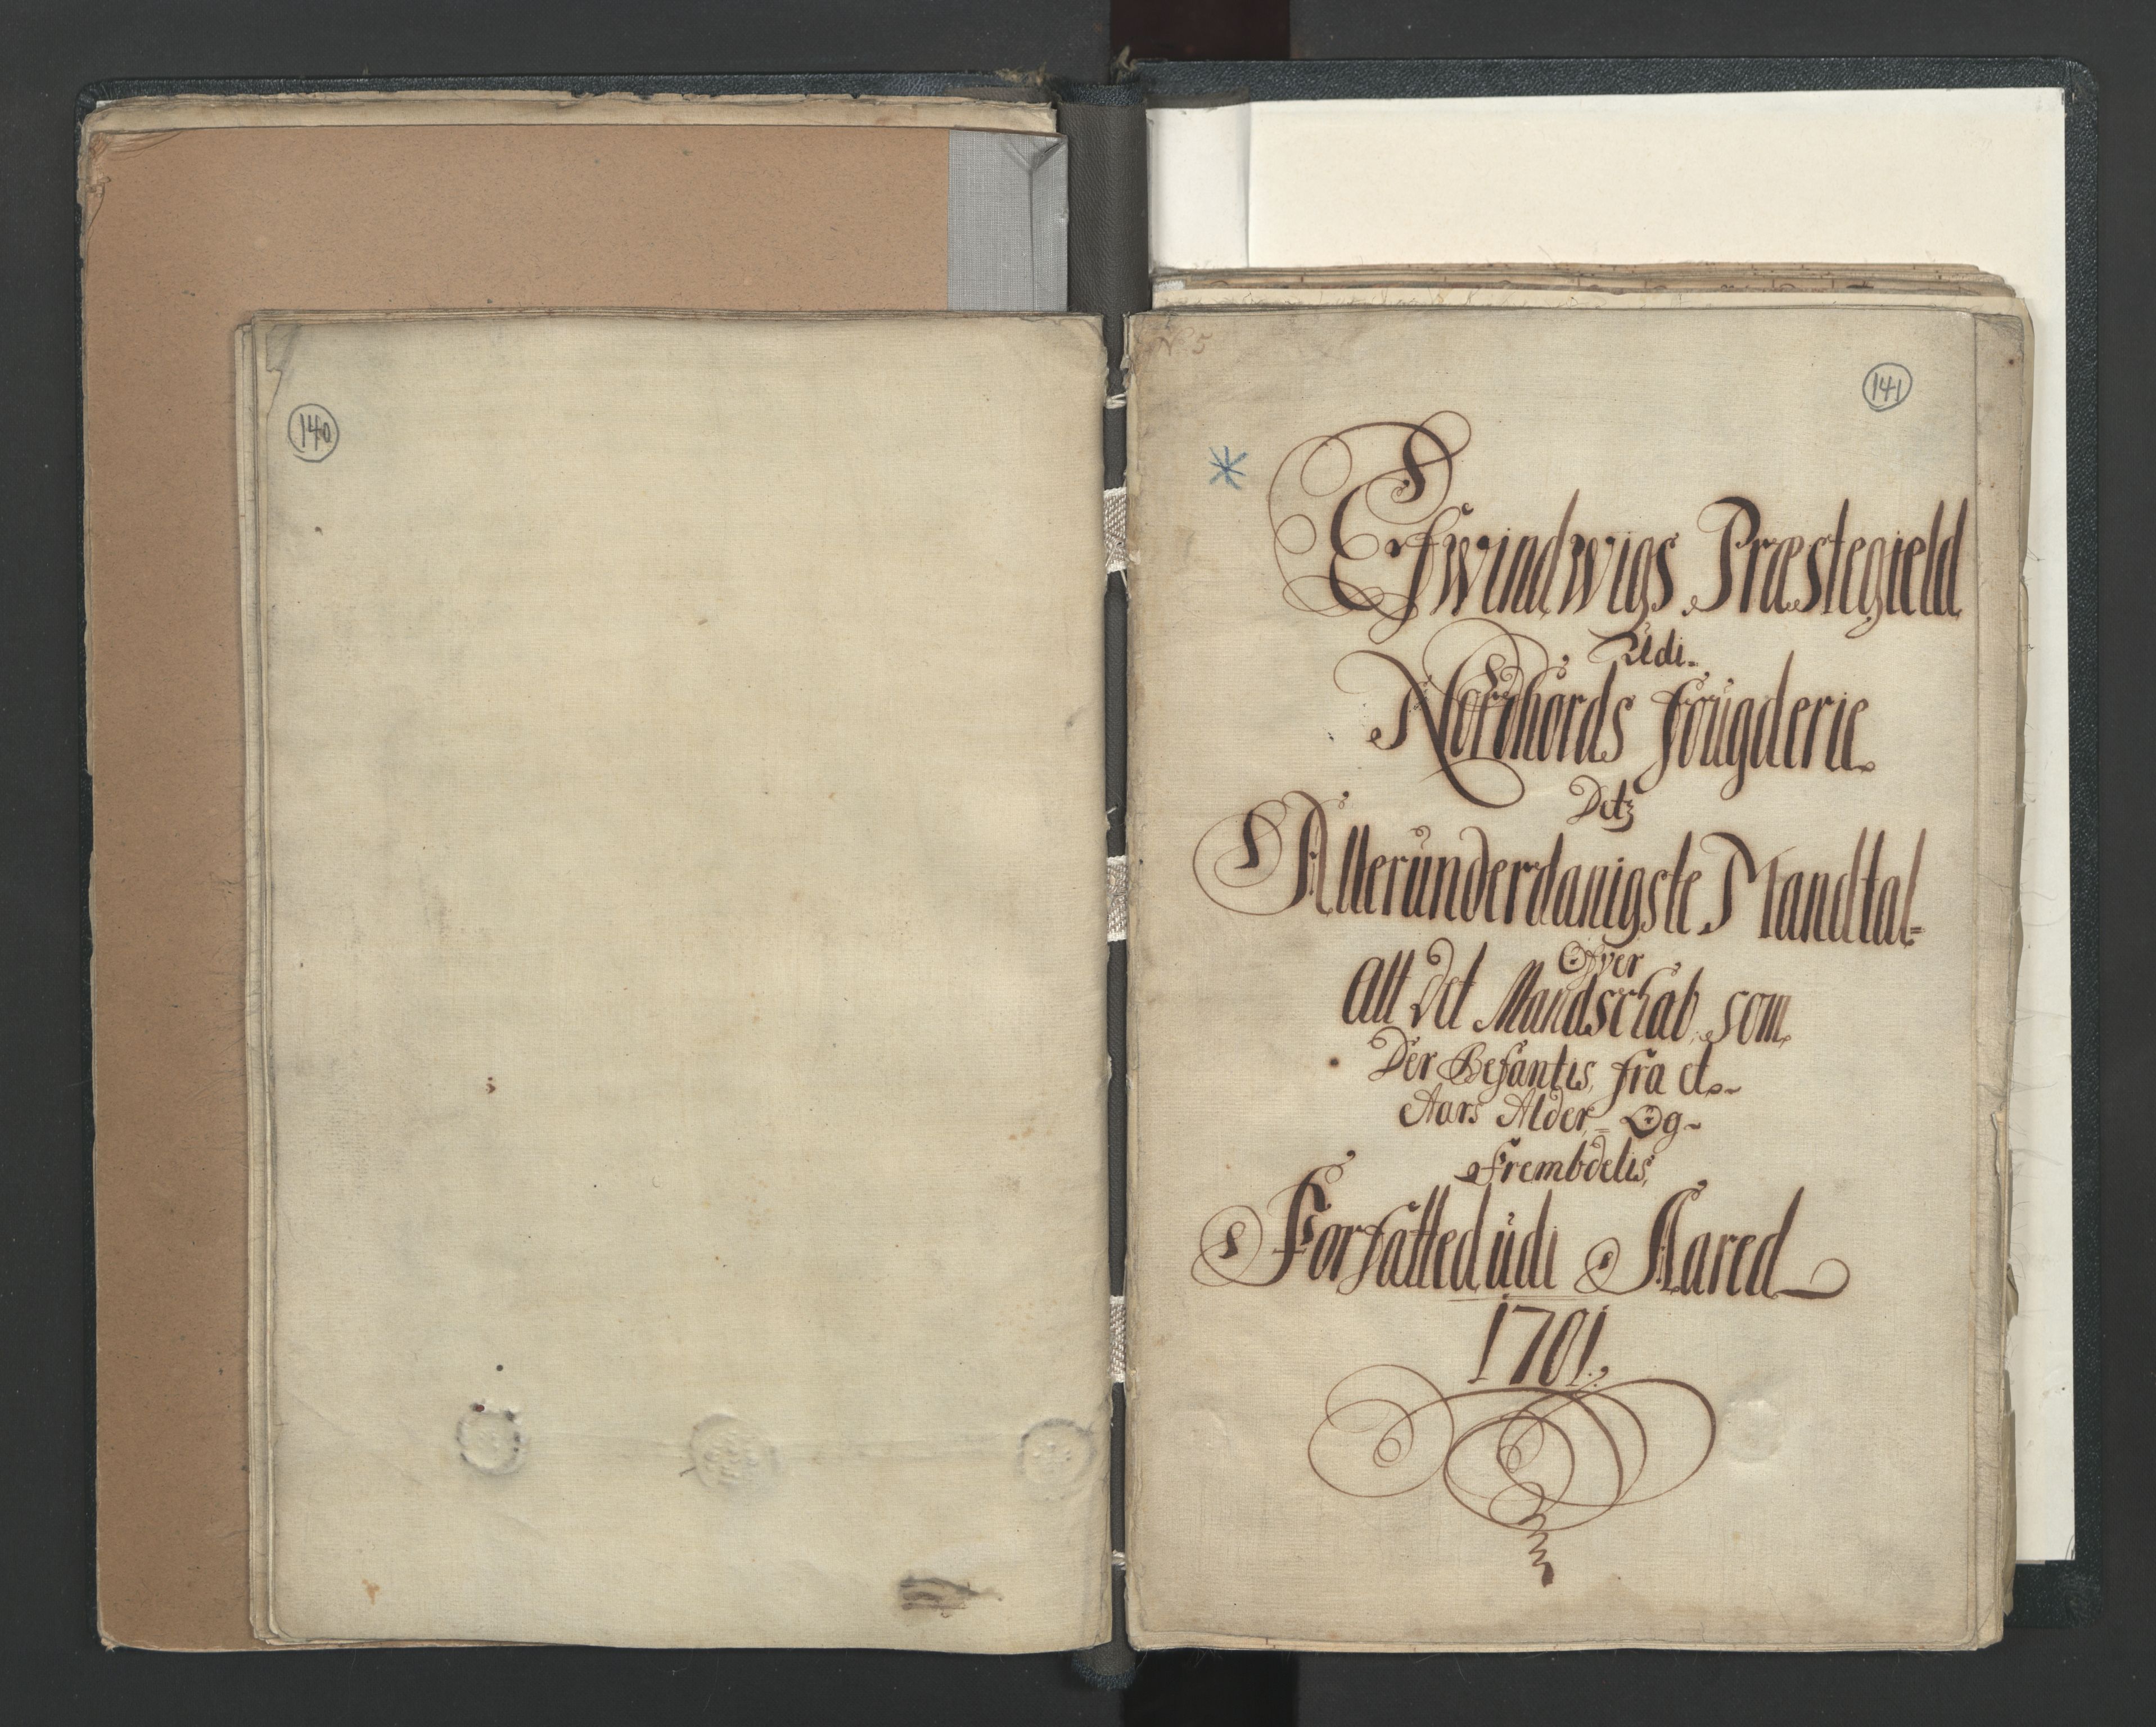 140
N 5
141
Efwindwigs Præstegield
Udi.
Nordhords fougderie.
Detz
Allerunderdanigste Mandtal=
Ofver
Alt det Mandschab som
Der Befantes, fra et
Aars Alder= Og
Frembdelis,
Forfatted udi Aared
1701.